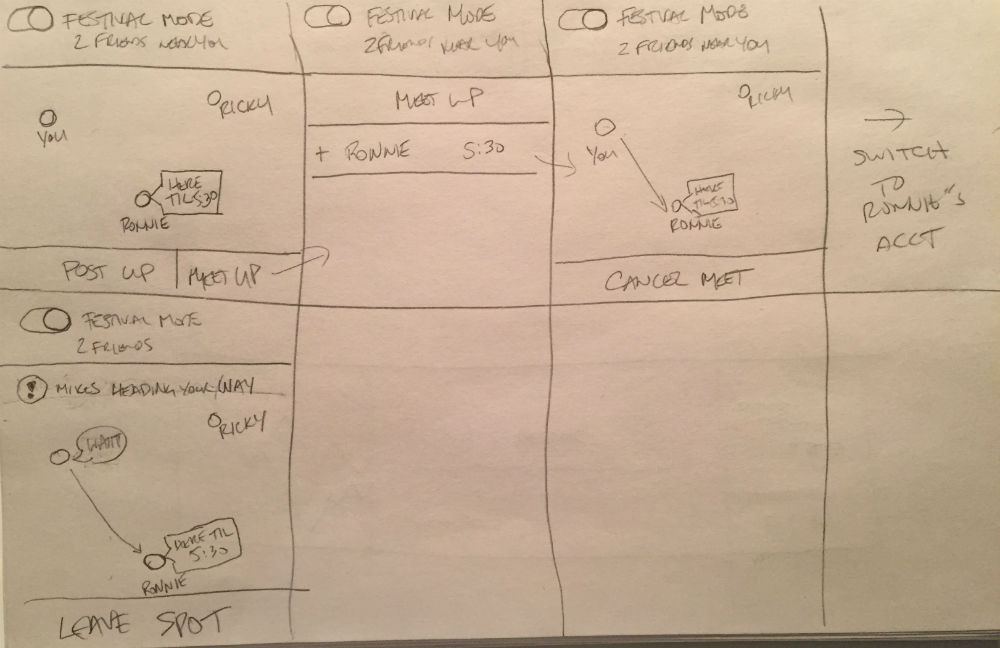 FESTIVAL MODE
2 FRIENDS NEAR YOU
RICKY
YOU
HERE
TIL 5:30
RONNIE
POST UP
MEET UP
FESTIVAL MODE
2 FRIENDS NEAR YOU
MEET UP
+ RONNIE 5:30
FESTIVAL MODE
2 FRIENDS NEAR YOU
RICKY
YOU
HERE
TIL 5:30
RONNIE
CANCEL MEET
→
SWITCH
TO
RONNIE"S
ACCT
FESTIVAL MODE
2 FRIENDS
! MIKES HEADING YOUR WAY
RICKY
HERE TIL
5:30
RONNIE
LEAVE SPOT